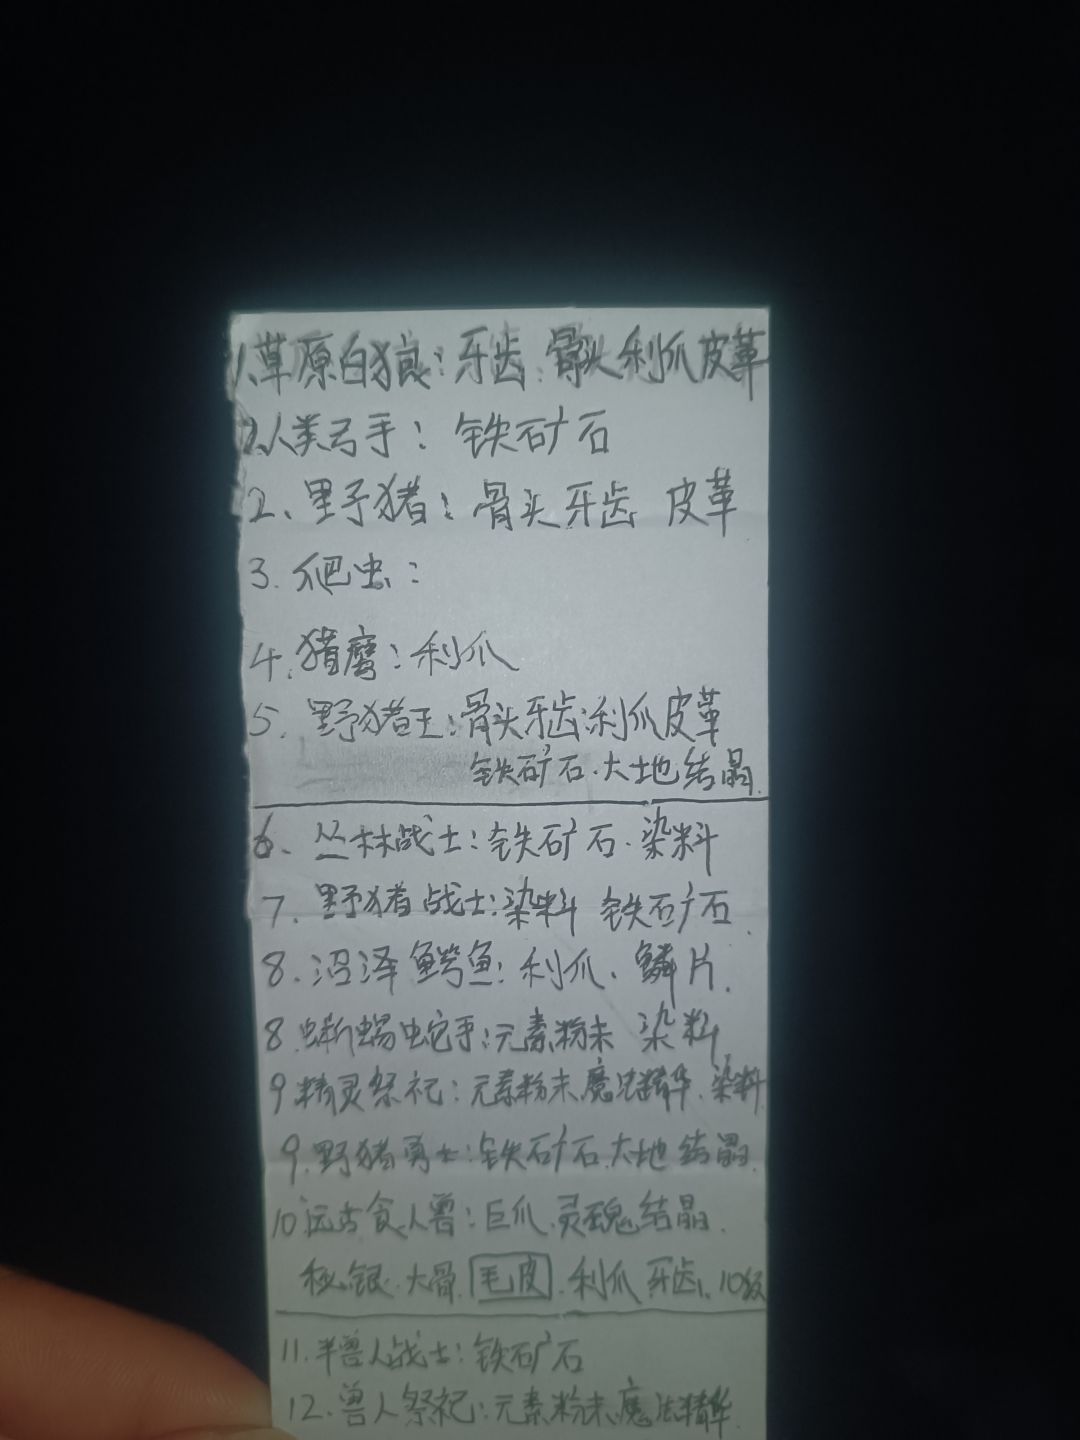 1.草原白狼:牙齿 骨头利爪皮革
2.人类弓手:铁矿石
2.野猪:骨头牙齿 皮革
3.爬虫:
4.猎鹰:利爪
5.野猪王:骨头牙齿.利爪皮革
铁矿石.大地结晶.
6.丛林战士:铁矿石.染料
7.野猪战士:染料 铁矿石.
8.沼泽鳄鱼:利爪.鳞片.
8.蜥蜴蛇手:元素粉末 染料
9精灵祭祀:元素粉末.魔法精华.染料
9.野猪勇士:铁矿石.大地结晶.
10远古食人兽:巨爪.灵魂结晶.
秘银.大骨.毛皮.利爪牙齿.10级
11.半兽人战士:铁矿石
12.兽人祭祀:元素粉末.魔法精华.